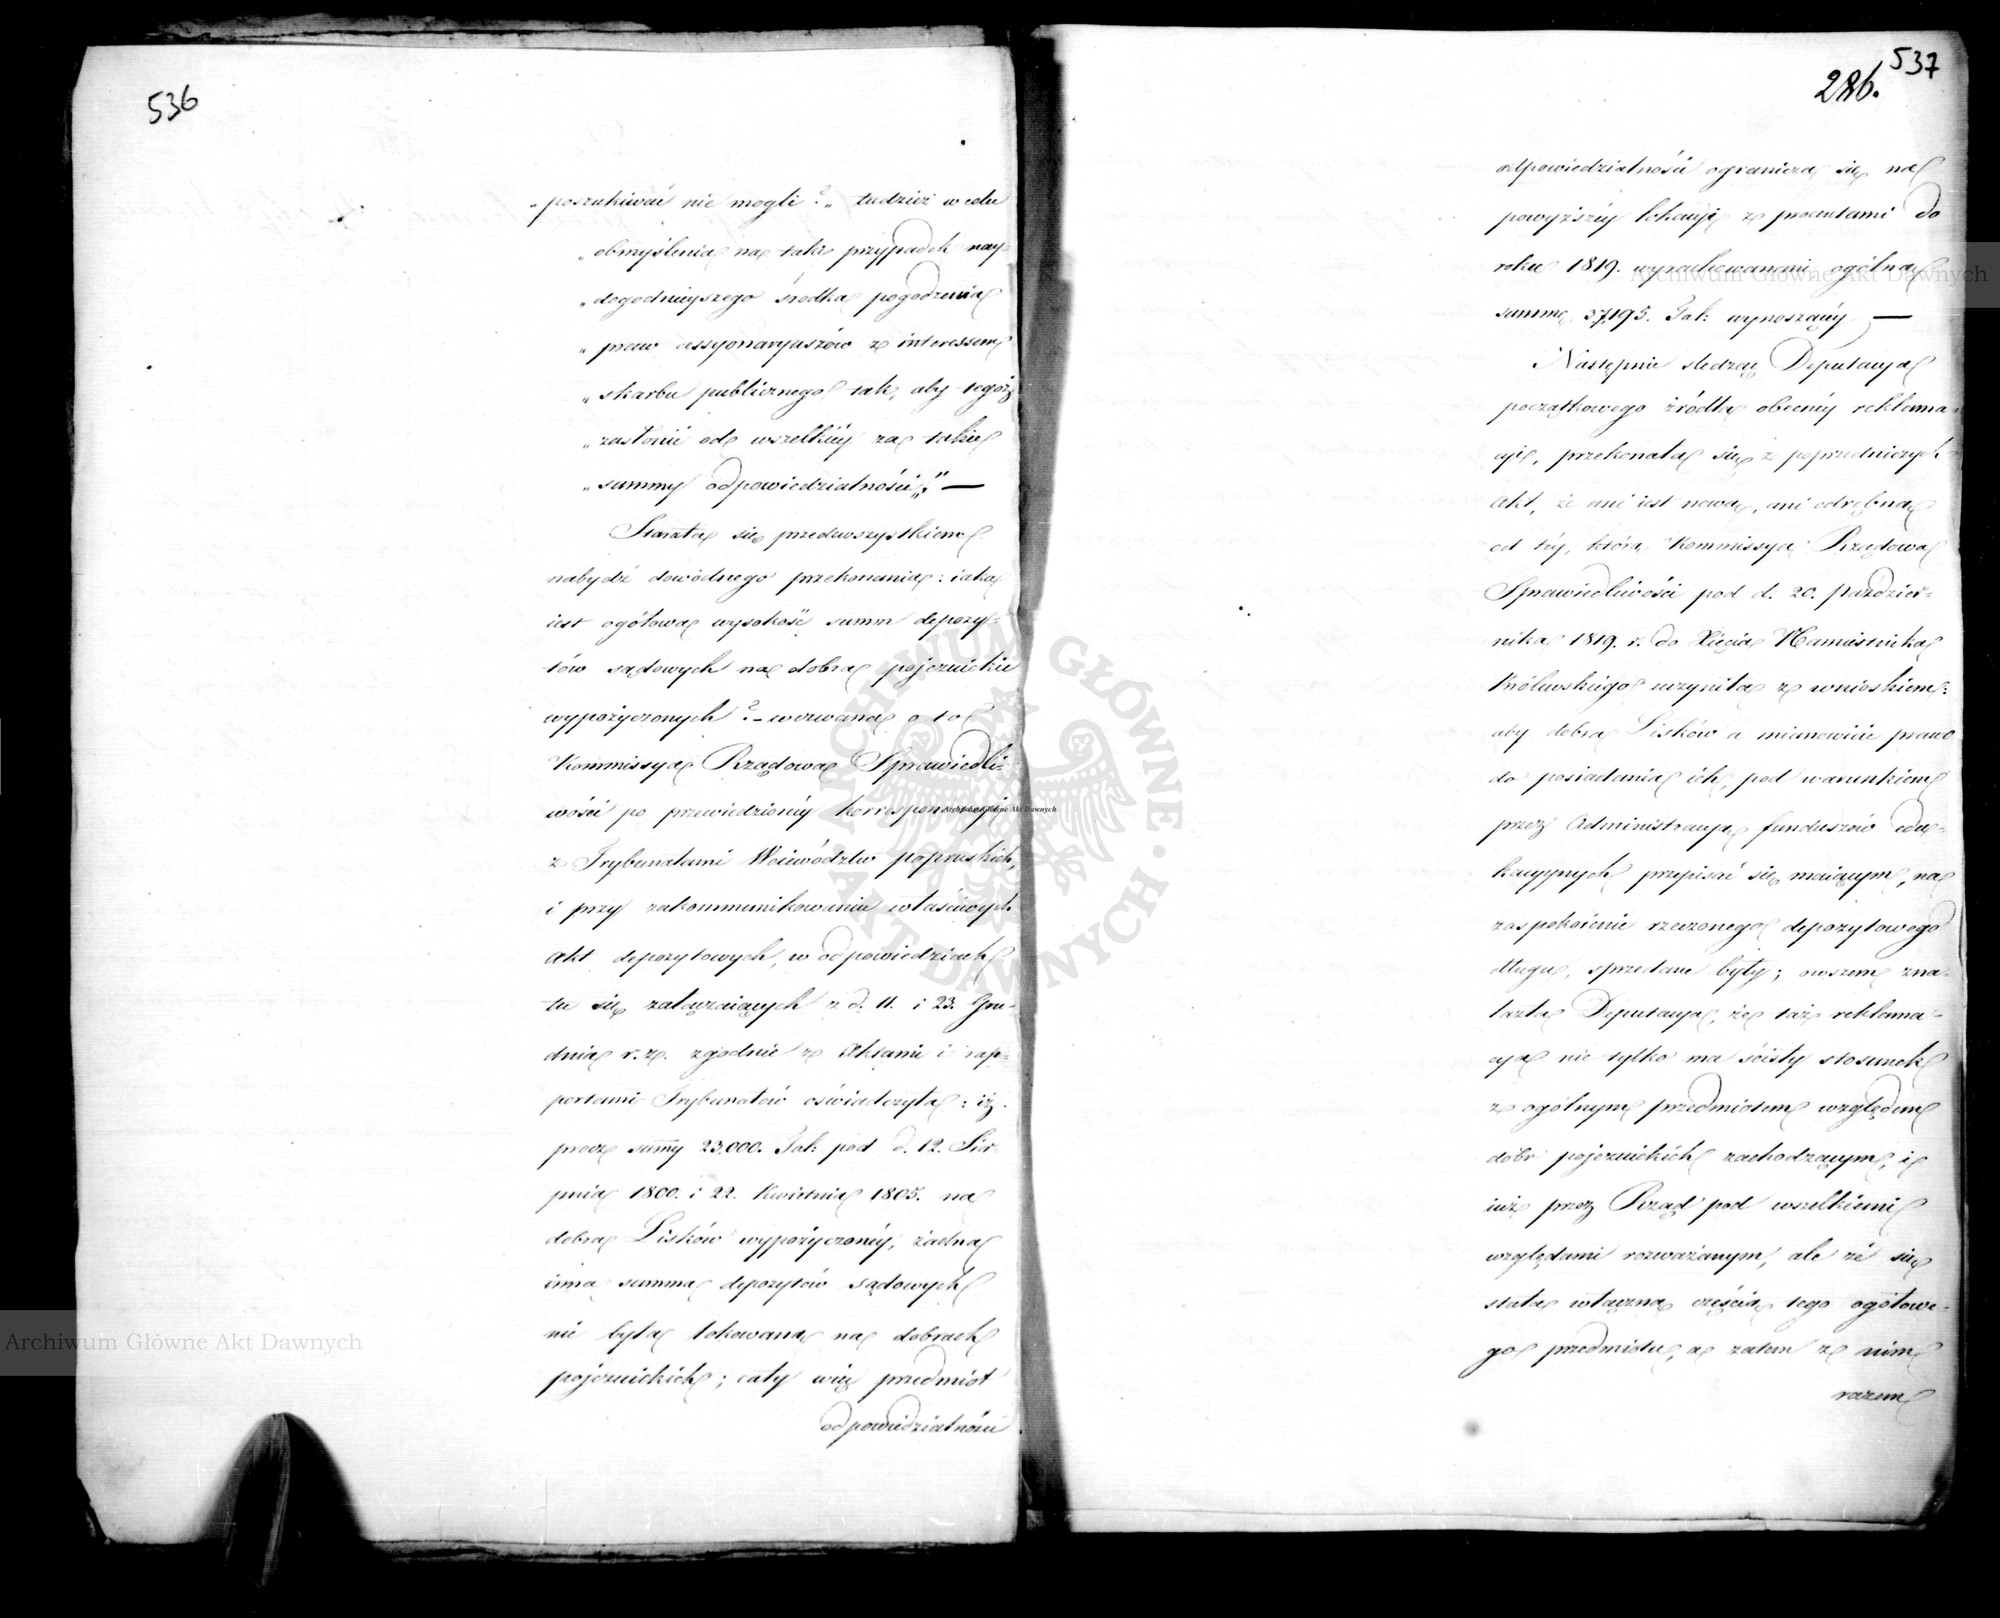 536
„poszukiwać nie mogli?„ tudzież w celu
„obmyślenia na taki przypadek nay-
„dogodnieyszego środka pogodzenia
„praw cessyonaryuszów z interessem
„skarbu publicznego tak, aby tegoż
„zasłonić od wszelkiéy za takie
„summy odpowiedzialności„." —
Starała się przedewszystkiem
nabydź dowodnego przekonania: iaka
iest ogółowa wysokość summ depozy-
tów sądowych na dobra pojezuickie
wypożyczonych? – wezwana o to
Kommissya Rządowa Sprawiedli-
wości po przewiedzionéy korrespondencji
z Trybunałami Woiewództw popruskich,
i przy zakommunikowaniu właściwych
Akt depozytowych, w odpowiedziach
tu się załączaiących z d. 11. i 23. Gru-
dnia r. z. zgodnie z Aktami i rap-
portami Trybunałów oświadczyła: iż
procz summy 23,000. Tal: pod d. 12. Sier-
pnia 1800. i 22. Kwietnia 1805. na
dobra Lisków wypożyczonéy, żadna
inna summa depozytów sądowych
nie była lokowana na dobrach
pojezuickich; cały więc przedmiot
odpowiedzialności
537
286.
odpowiedzialności ogranicza się na
powyższéy lokacyi z procentami do
roku 1819. wyrachowanemi ogólną
summę 37,195. Tal: wynoszącéy —
Następnie śledząc Deputacya
początkowego źródła obecnéy reklama-
cyi, przekonała się z poprzedniczych
Akt, że ani iest nowa, ani odrębna
od téy, którą Kommissya Rządowa
Sprawiedliwości pod d. 20. Paździer-
nika 1819. r. do Xięcia Namiestnika
Królewskiego uczyniła z wnioskiem:
aby dobra Lisków a mianowicie prawo
do posiadania ich, pod warunkiem
przez Administracyą funduszów edu-
kacyjnych przepisać się maiącym, na
zaspokoienie rzeczonego depozytowego
długu, sprzedane były; owszem zna-
lazła Deputacya, że taż reklama-
cya nie tylko ma ścisły stosunek
z ogólnym przedmiotem względem
dóbr pojezuickich zachodzącym, i
iuż przez Rząd pod wszelkiemi
względami rozważanym, ale że się
stała włączną częścią tego ogółowe-
go przedmiotu, a zatem z nim
razem
Archiwum Główne Akt Dawnych
Archiwum Główne Akt Dawnych
Archiwum Główne Akt Dawnych
ARCHIWUM GŁÓWNE · AKT DAWNYCH ·